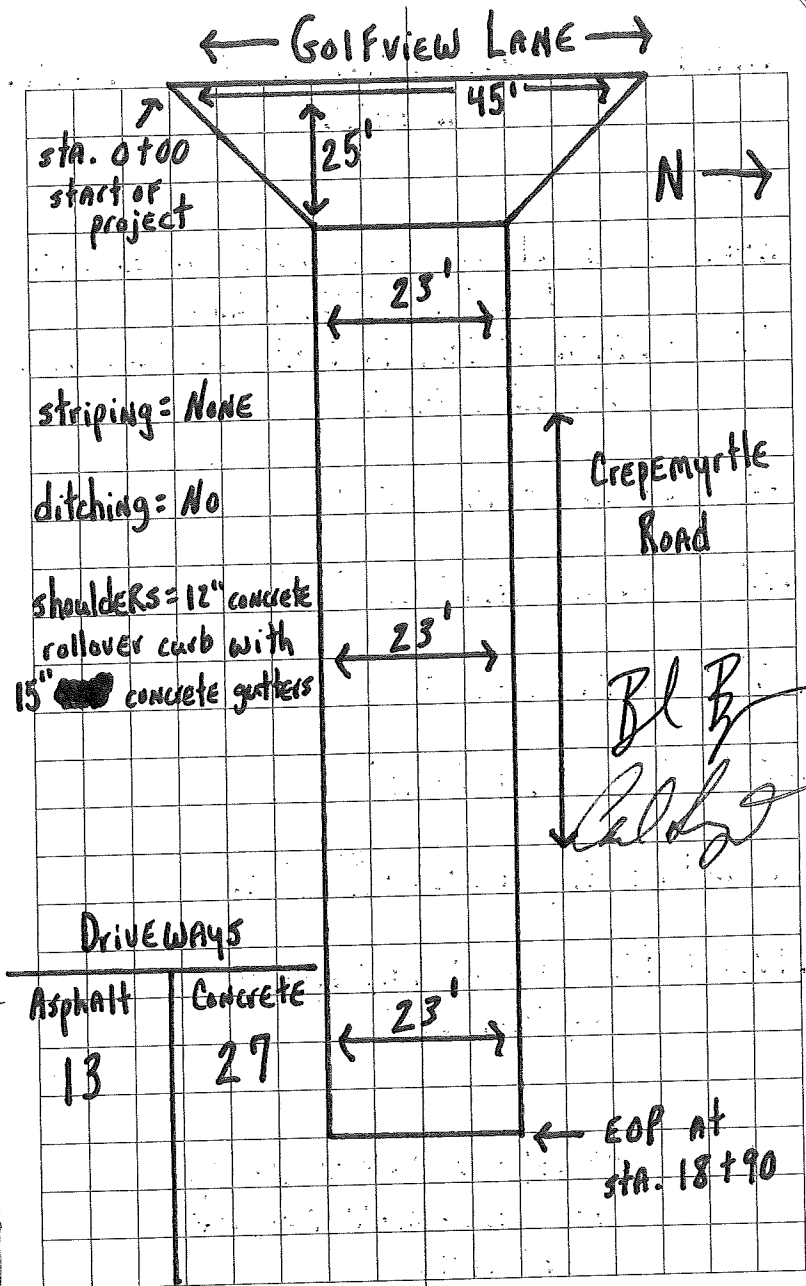 ← GOlFVIEW LANE →
45'
25'
stA. 0+00
stARt OF
project
N →
23'
striping = NONE
ditching = No
CrEPEmyrtlE
ROAD
shouldERs = 12" concrete
rollover curb with
15" concrete gutters
23'
DrivEWAys
AsphAlt
ConcrEtE
13
27
23'
← EOP At
stA. 18+90